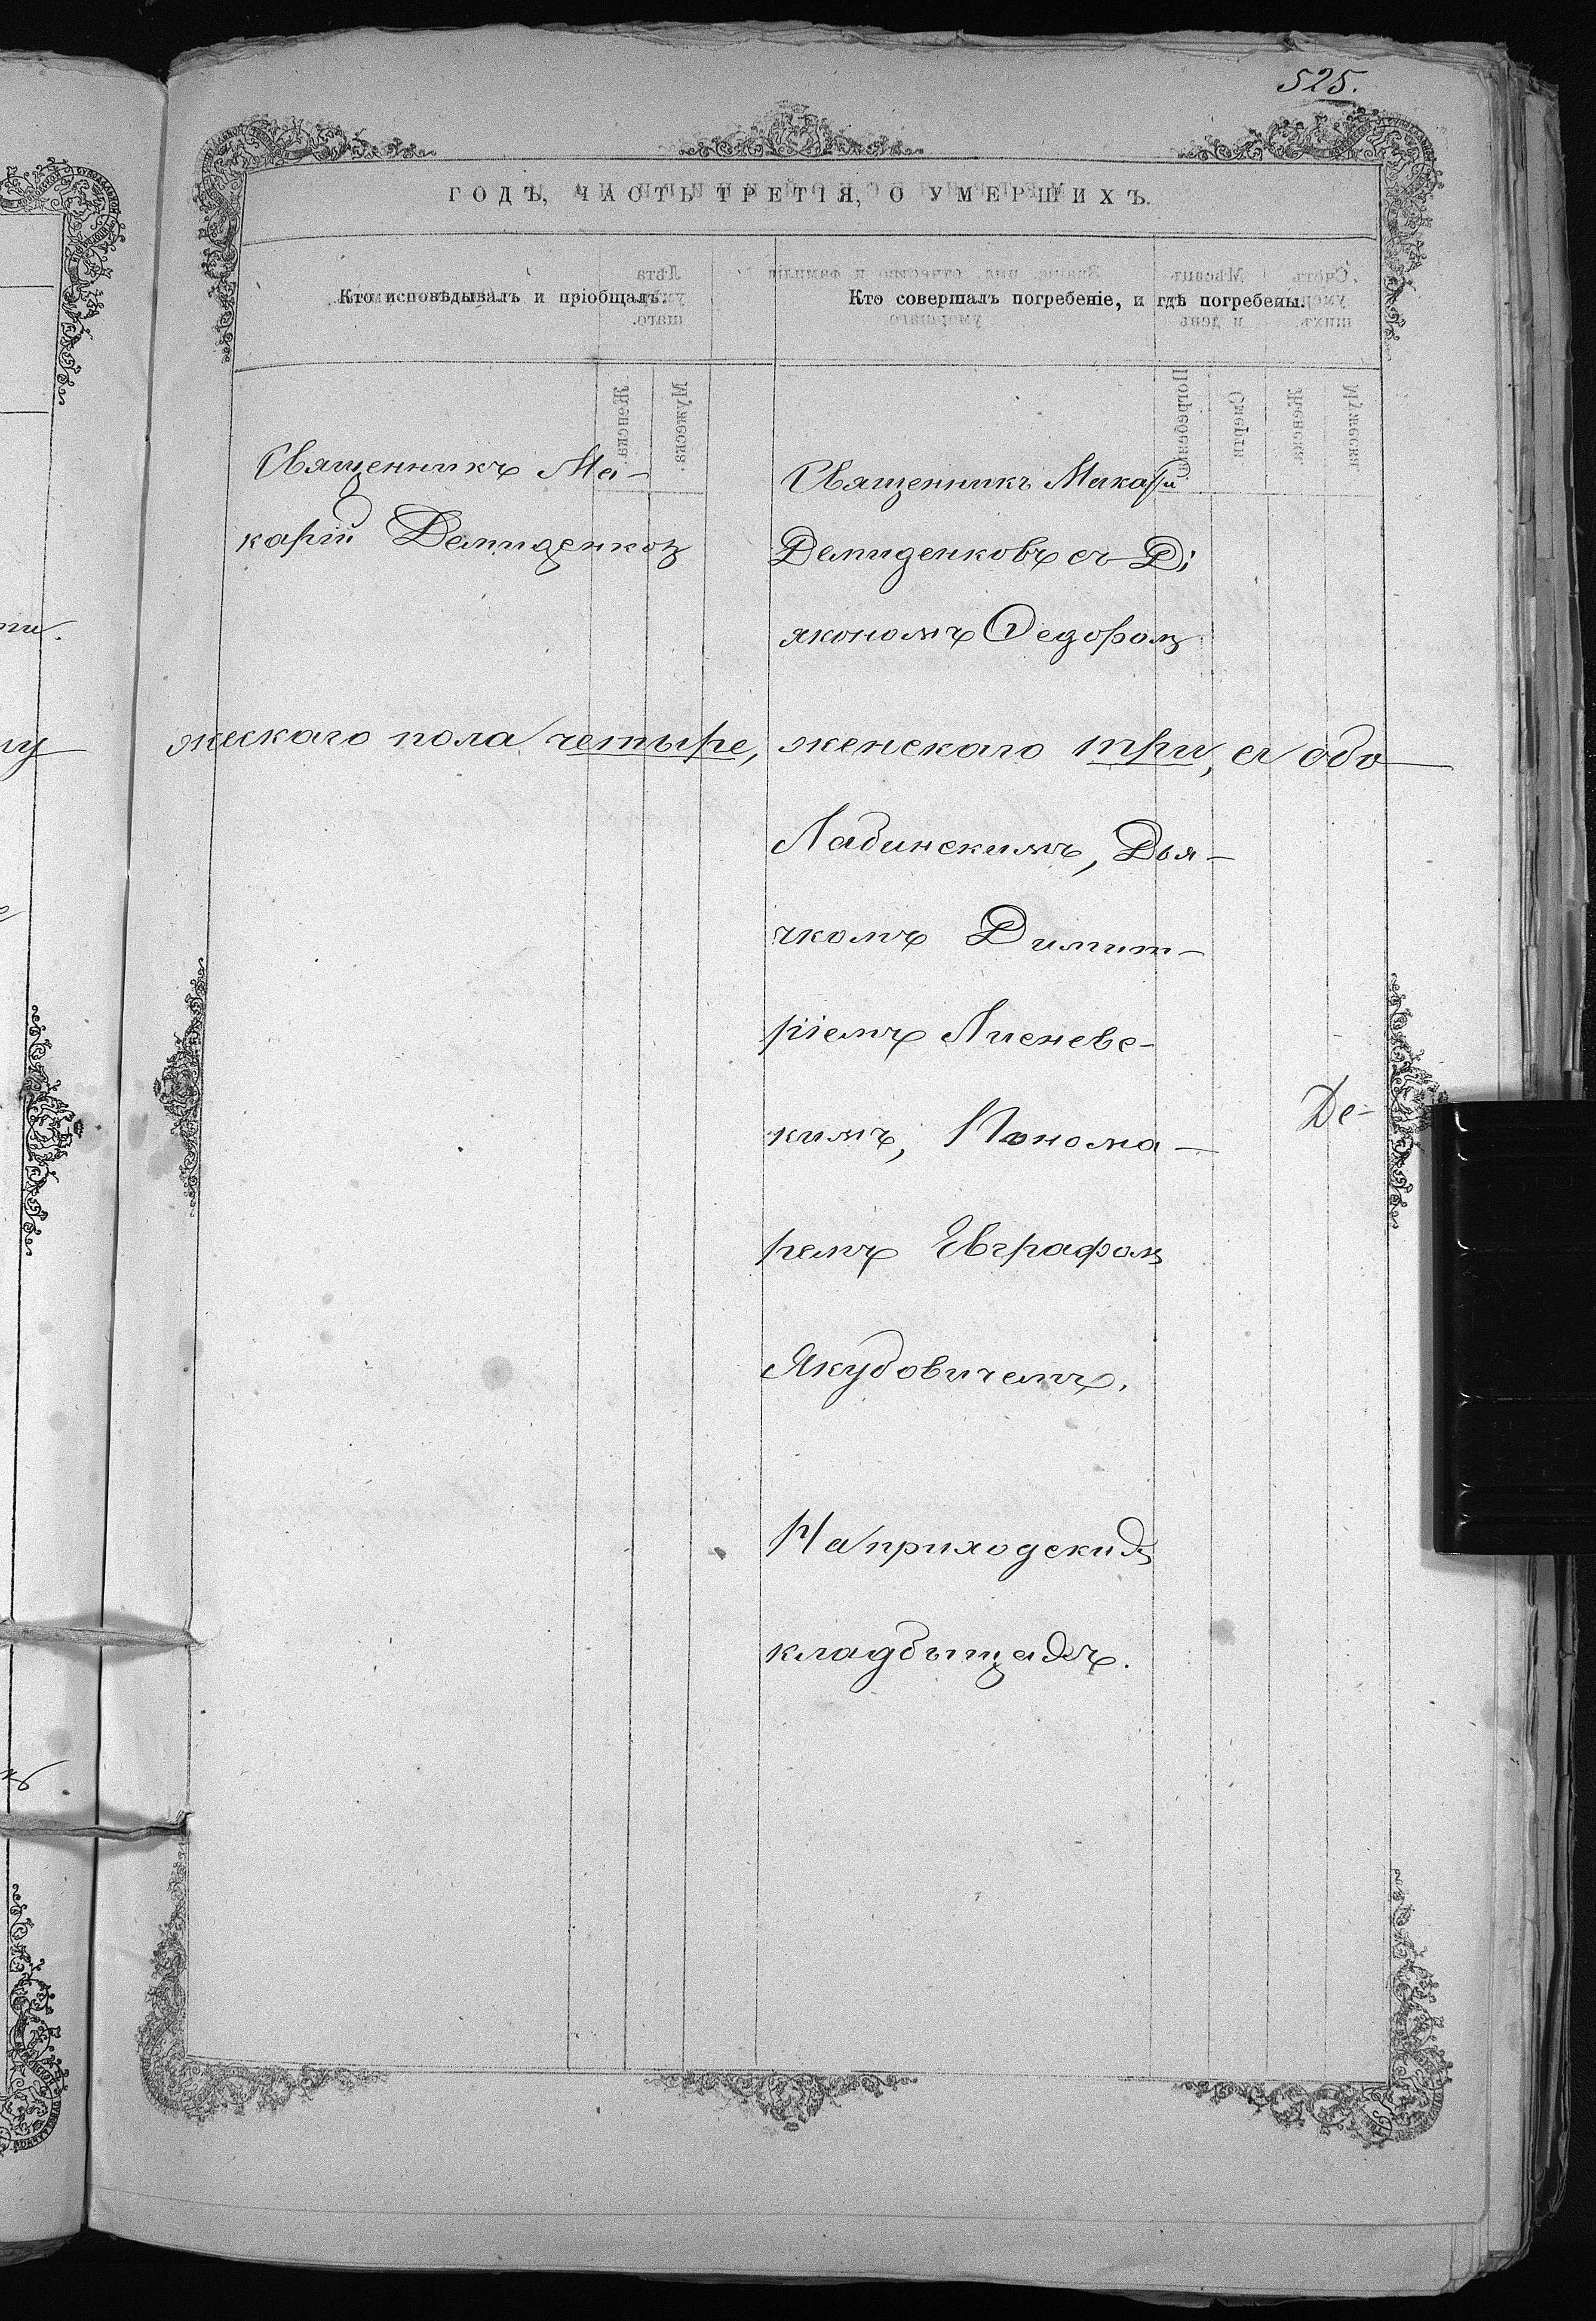 525.
ГОДЪ, ЧАСТЬ ТРЕТІЯ, О УМЕРШИХЪ.
Кто исповѣдывалъ и пріобщалъ.
Кто совершалъ погребеніе, и гдѣ погребены.
Священникъ Ма-
карій Демиденковъ
Священникъ Макарій
Демиденковъ съ Ді
якономъ Ѳедоромъ
жескаго пола четыре, женскаго три, а обо
Лабинскимъ, Дья-
чкомъ Димит-
ріемъ Лисневс-
кимъ, Понома-
Де-
ремъ Евграфомъ
Якубовичемъ.
На приходскихъ
кладбыщахъ.